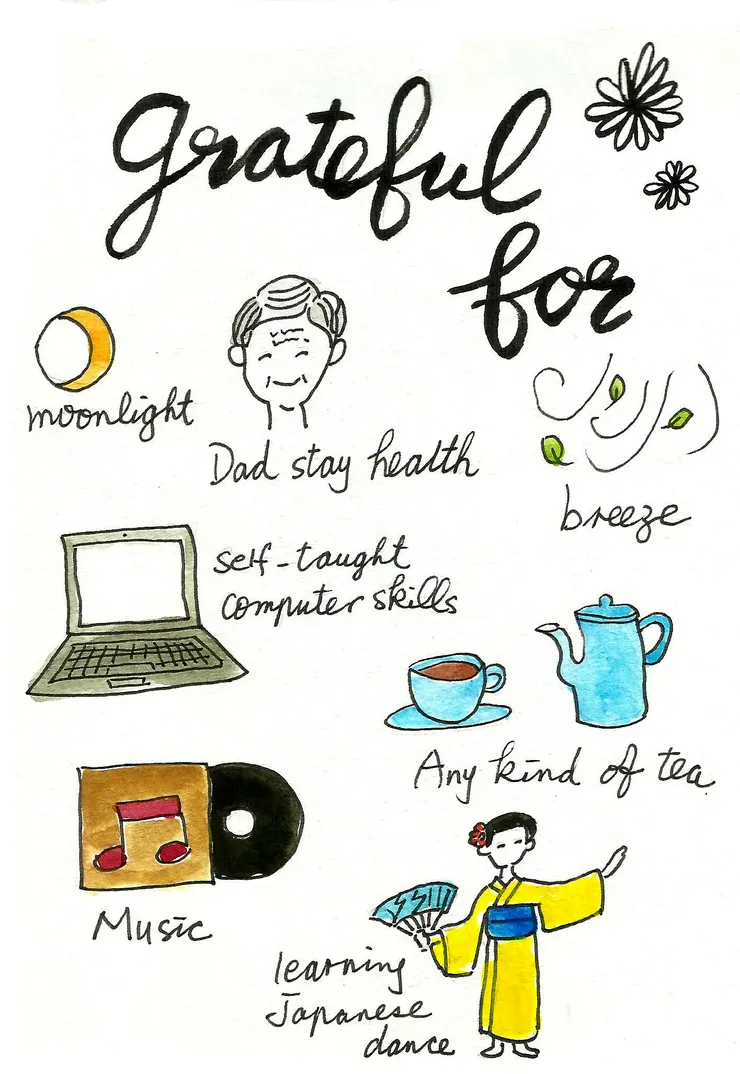 grateful
for
moonlight
Dad stay health
breeze
self-taught
computer skills
Any kind of tea
Music
learning
Japanese
dance